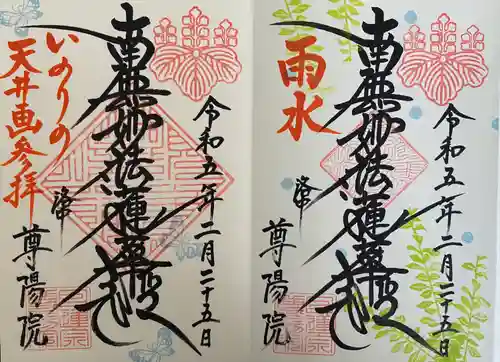 奉拝
いのりの
天井画参拝
南無妙法蓮華経
令和五年二月二十五日
尊陽院
雨水
南無妙法蓮華経
令和五年二月二十五日
尊陽院